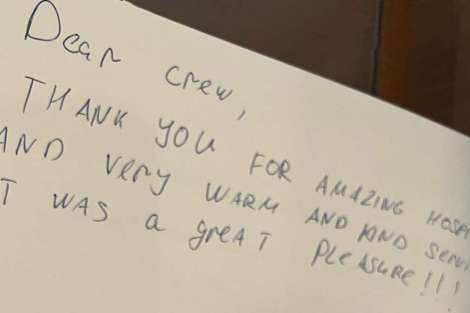 Dear crew,
THANK YOU FOR AMAZING HOSP
AND very WARM AND KIND SERVI
T WAS a greAT PLEASURE!!!